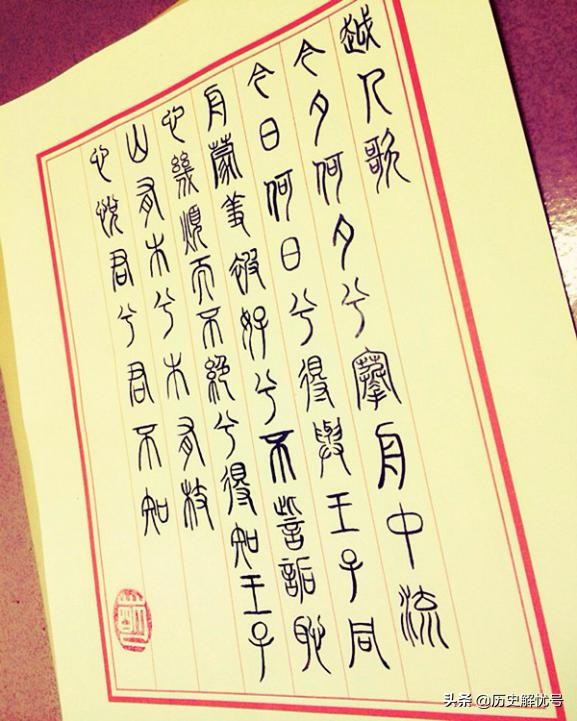 越人歌
今夕何夕兮搴舟中流
今日何日兮得與王子同
舟蒙羞被好兮不訾詬恥
心幾煩而不絕兮得知王子
山有木兮木有枝
心悅君兮君不知
头条 @历史解忧号